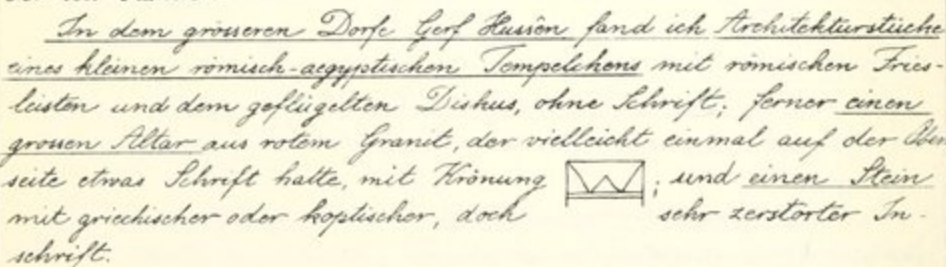 In dem grösseren Dorfe Gerf Hussên fand ich Architekturstücke
eines kleinen römisch-aegyptischen Tempelchens mit römischen Fries-
leisten und dem geflügelten Diskus, ohne Schrift; ferner einen
grossen Altar aus rotem Granit, der vielleicht einmal auf der Ober
seite etwas Schrift hatte, mit Krönung ; und einen Stein
mit griechischer oder koptischer, doch sehr zerstorter In-
schrift.